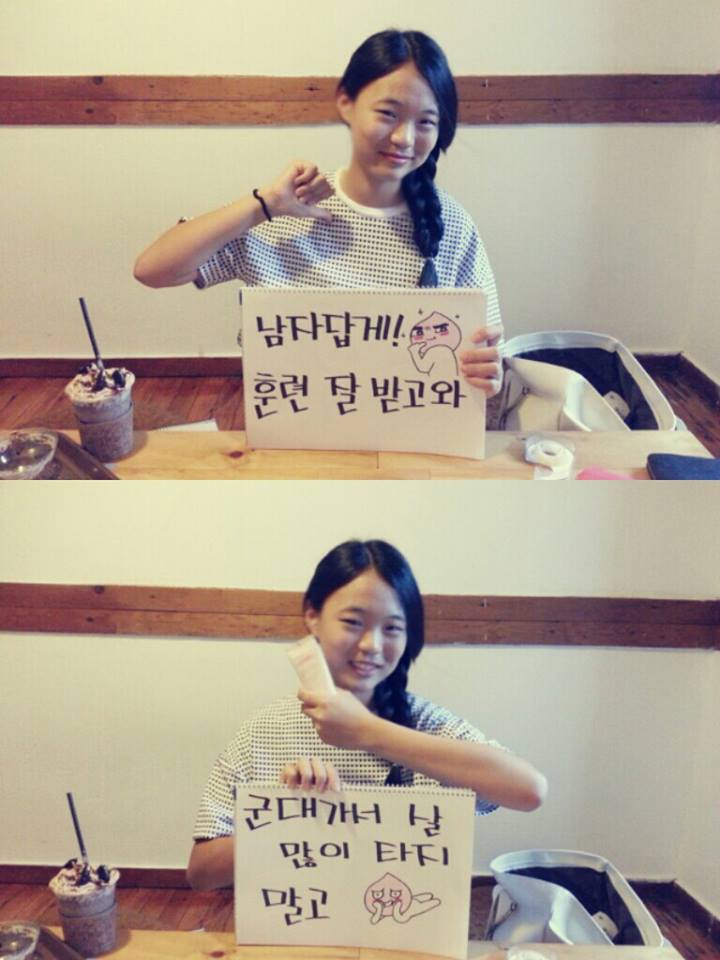 남자답게!
훈련 잘 받고와
군대가서 살
많이 타지
말고